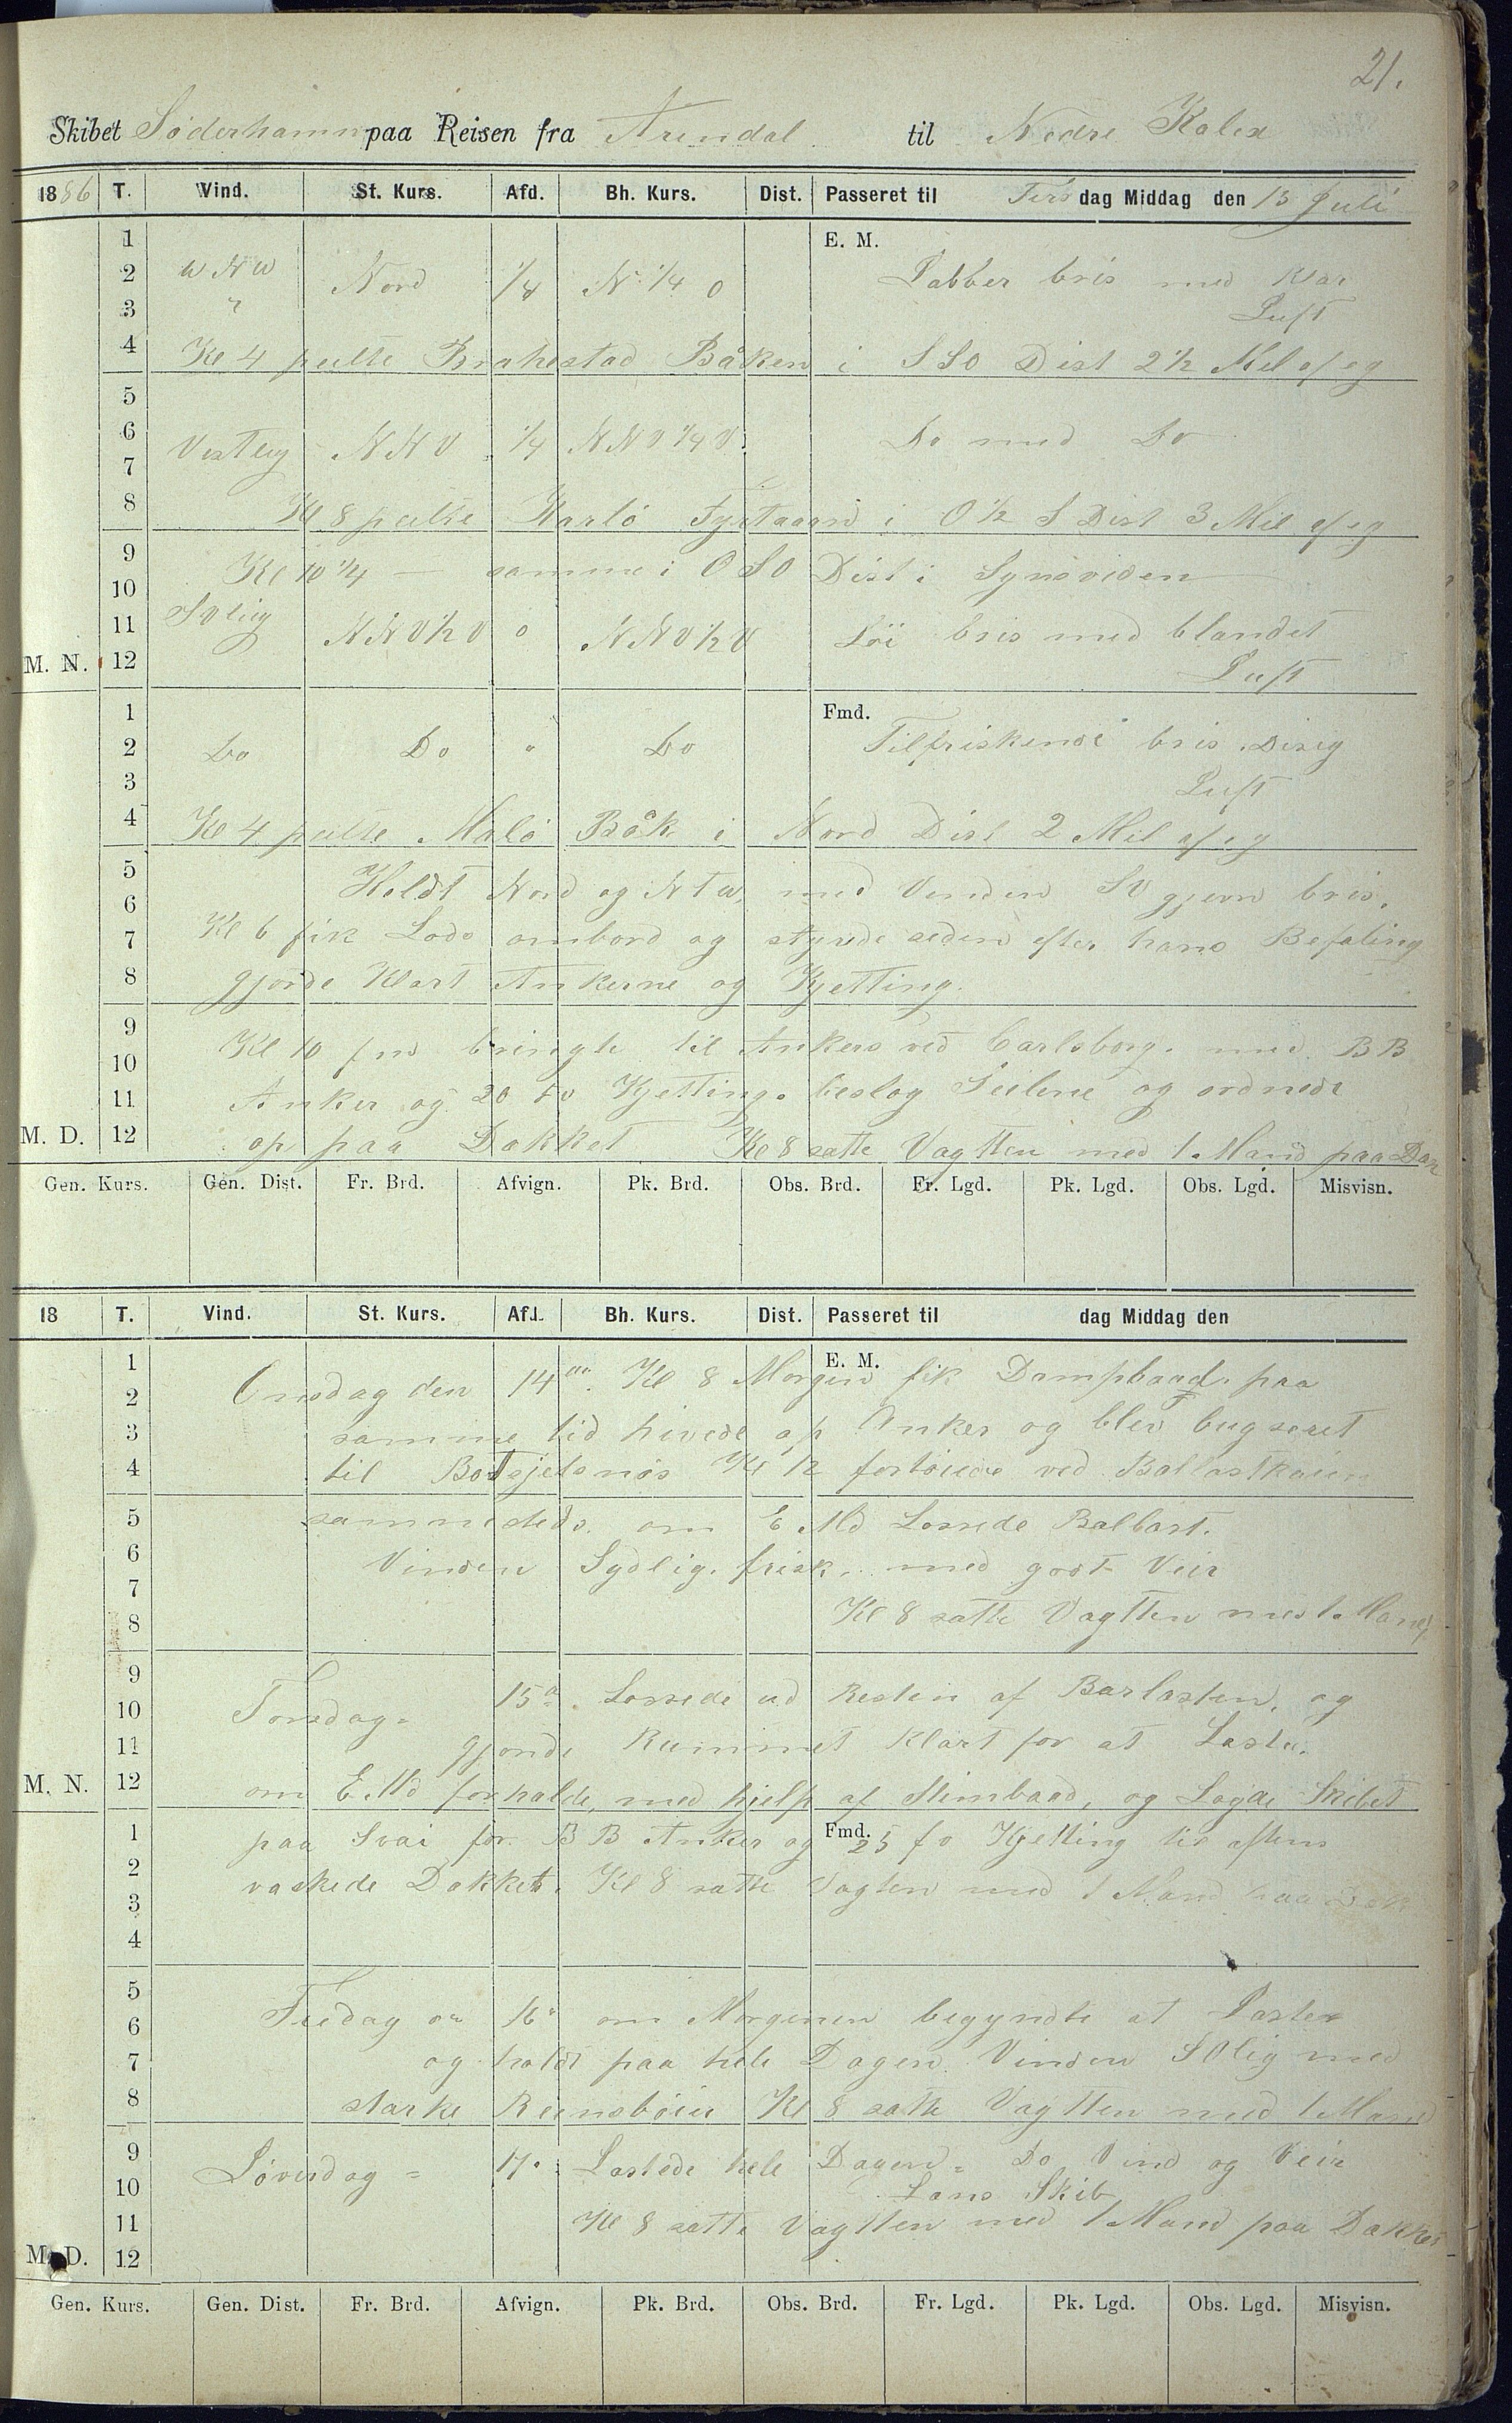 21.
Skibet Söderhamn paa Reisen fra Arendal til Nedre Kalix
1886 T. Vind. St. Kurs. Afd. Bh. Kurs. Dist. Passeret til Tirsdag Middag den 13 Juli
1 E. M.
2 W N W Nord 1/4 N 1/4 O Labber bris med Klar
3 " Luft
4 Kl 4 peilte Brahestad Båken i S S O Dist 2 1/2 Mil af og
5
6 Vestlig N N V 1/4 N N V 1/4 V. Do med Do
7
8 Kl 8 peilte Karlö Fyrtaarn i O 1/2 S Dist 3 Mil af og
9
10 Kl 10 1/4 — samme i O S O Dist i Synsviden
11 S V lig N N V 1/2 V o N N V 1/2 V Löi bris med blandet
M. N. 12 Luft
1 Fmd.
2 Do Do " Do Tilfriskende bris. Disig
3 Luft
4 Kl 4 peilte Malö Båk i Nord Dist 2 Mil af og
5 Holdt Nord og N t W, med Vinden S V gjevn bris.
6
7 Kl 6 fik Lods ombord og styrede seden efter hans Befaling
8 gjorde Klart Ankerne og Kjetting.
9
10 Kl 10 fm bringte til Ankers ved Carlsborg. med B B
11 Anker og 20 fv Kjetting. beslog Seilene og ordnede
M. D. 12 op paa Dækket Kl 8 satte Vagtten med 1 Mand paa Dæk
Gen. Kurs. Gen. Dist. Fr. Brd. Afvign. Pk. Brd. Obs. Brd. Fr. Lgd. Pk. Lgd. Obs. Lgd. Misvisn.
18 T. Vind. St. Kurs. Afd. Bh. Kurs. Dist. Passeret til dag Middag den
1 E. M.
2 Onsdag den 14de. Kl 8 Morgen fik Dampbaad. paa
3 samme tid hivede op Anker og blev bugseret
4 til Kl 12 fortöiede ved Ballastkaien
5 sammesteds. om E Md Lossede Balbast.
6 Vinden Sydlig. frisk. med godt Veir
7
8 Kl 8 satte Vagtten med 1 Mand
9
10 Torsdag 15 Lossede ud Resten af Barlasten, og
11 gjorde Rummet Klart for at Laste.
M. N. 12 om E. Md forhalde, med hjelp af Stimbaad, og Lagde Skibet
1 paa Svai for B B Anker og Fmd. 25 fv Kjetting til aften
2 vaskede Dækket. Kl 8 satte Vagten med 1 Mand paa Dæk
3
4
5
6 Fredag 16 om Morgenen begyndte at Laste
7 og holdt paa hele Dagen Vinden S V lig med
8 starke Reinsböier Kl 8 satte Vagtten med 1 Mand
9 Löverdag = 17 Lastede hele Dagen = Do Vind og Veir
10 Lens Skib
11 Kl 8 satte Vagtten med 1 Mand paa Dækket
M. D. 12
Gen. Kurs. Gen. Dist. Fr. Brd. Afvign. Pk. Brd. Obs. Brd. Fr. Lgd. Pk. Lgd. Obs. Lgd. Misvisn.